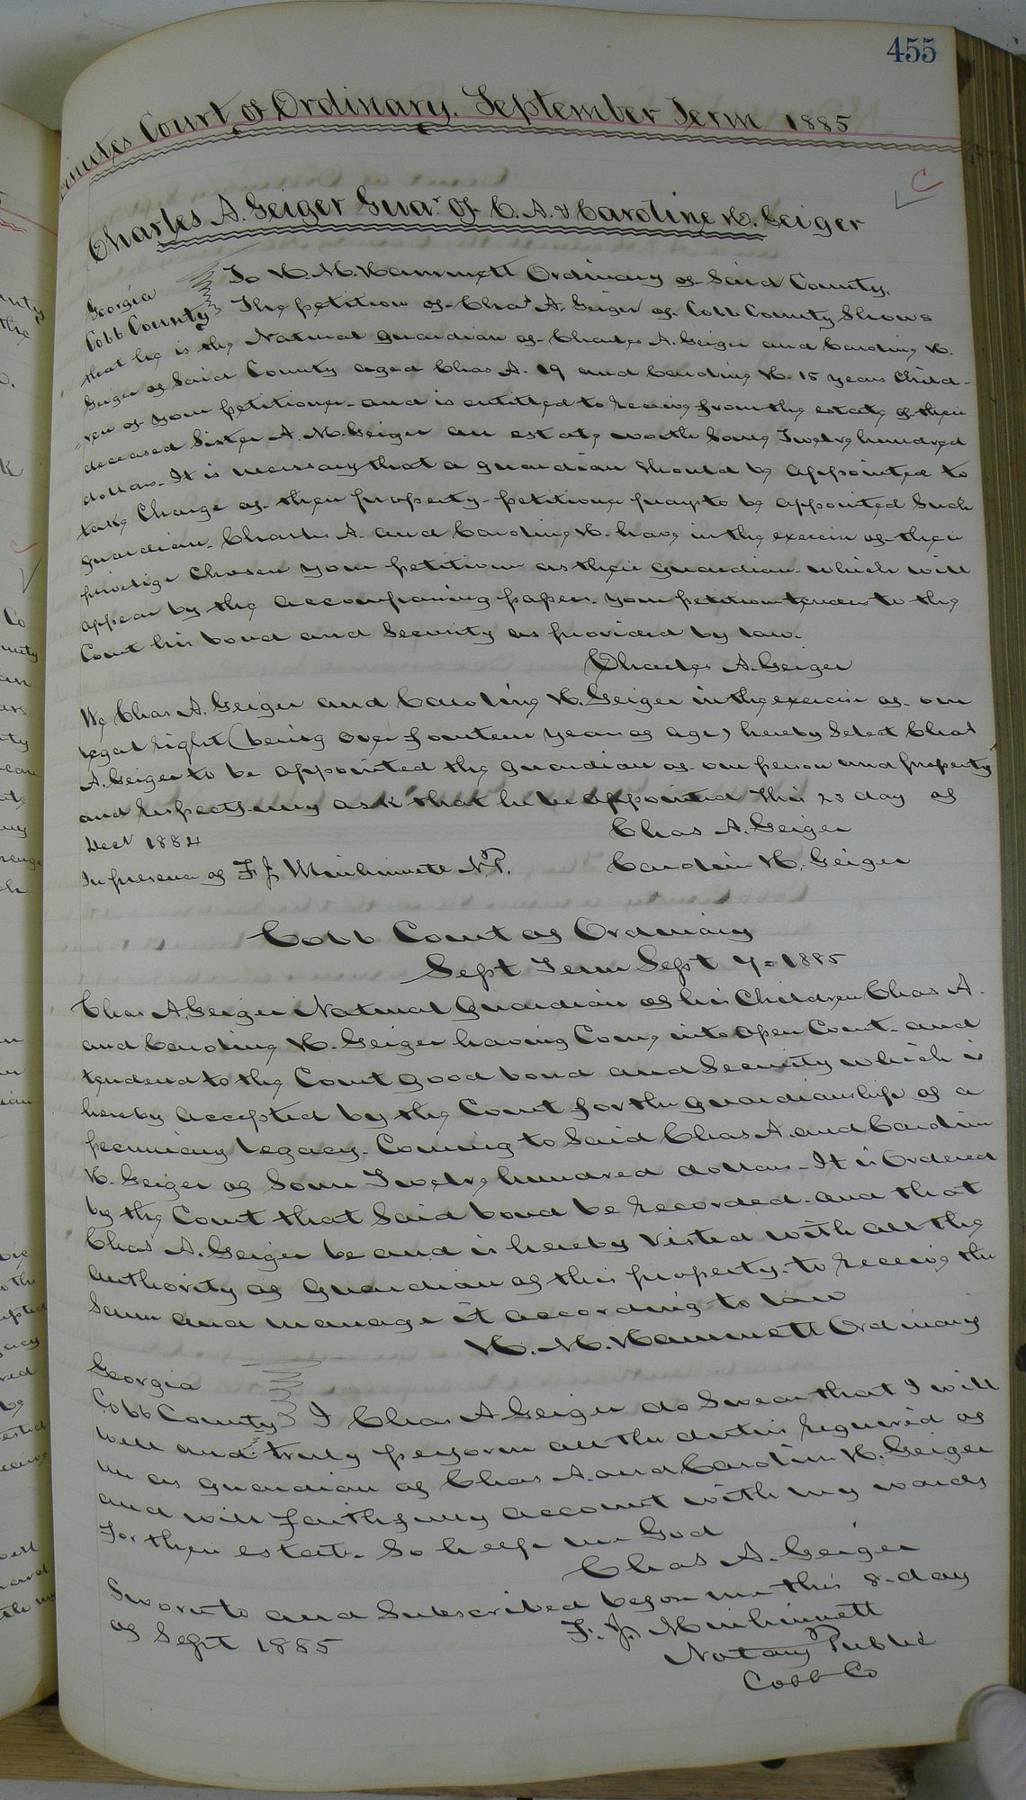 455
Minutes Court of Ordinary. September Term 1885
Charles A. Geiger Guar. of C. A. & Caroline H. Geiger
Georgia
To H. M. Hammett Ordinary of Said County.
Cobb County The petition of Chas A. Geiger of Cobb County Shows
that he is the Natural guardian of Charles A. Geiger and Caroline H.
Geiger of Said County aged Chas A. 19 and Caroline H. 15 years Child-
ren of your petitioner and is entitled to receive from the estate of their
deceased Sister A. M. Geiger an estate worth Some Twelve hundred
dollars. It is necessary that a guardian Should be appointed to
take Charge of their property - petitioner prays to be appointed Such
guardian. Charles A. and Caroline H. have in the exercise of their
privelige Chosen your petitioner as their guardian which will
appear by the accompaning papers. your petitioner tenders to the
Court his bond and Security as provided by law.
Charles A. Geiger
We Chas A. Geiger and Caroline H. Geiger in the exercise of our
legal right (being over fourteen years of age) hereby Select Chas
A. Geiger to be appointed the guardian of our person and property
and respectfully ask that he be appointed This 23 day of
Decr 1884
Chas A. Geiger
In presence of F. J. Minhinnette N.P.
Carolin H. Geiger
Cobb Court of Ordinary
Sept Term Sept 7 = 1885
Chas A. Geiger Natural Guardian of his Children Chas A.
and Caroline H. Geiger having Come into open Court and
tendered to the Court good bond and Security which is
hereby accepted by the Court for the guardianship of a
pecuniary legacy. Coming to Said Chas A. and Carolin
H. Geiger of Some Twelve hundred dollars - It is Ordered
by the Court that Said bond be recorded and that
Chas A. Geiger be and is hereby Vested with all the
authority as Guardian of this property - to receive the
Same and manage it according to law
H. M. Hammett Ordinary
Georgia
Cobb County I Chas A Geiger do Swear that I will
well and truly perform all the duties required of
me as guardian of Chas A. and Carolin H. Geiger
and will faithfully account with my wards
for their estate. So help me God
Chas A. Geiger
Sworn to and Subscribed before me this 8. day
of Sept 1885
F. J. Minhinnett
Notary Public
Cobb Co